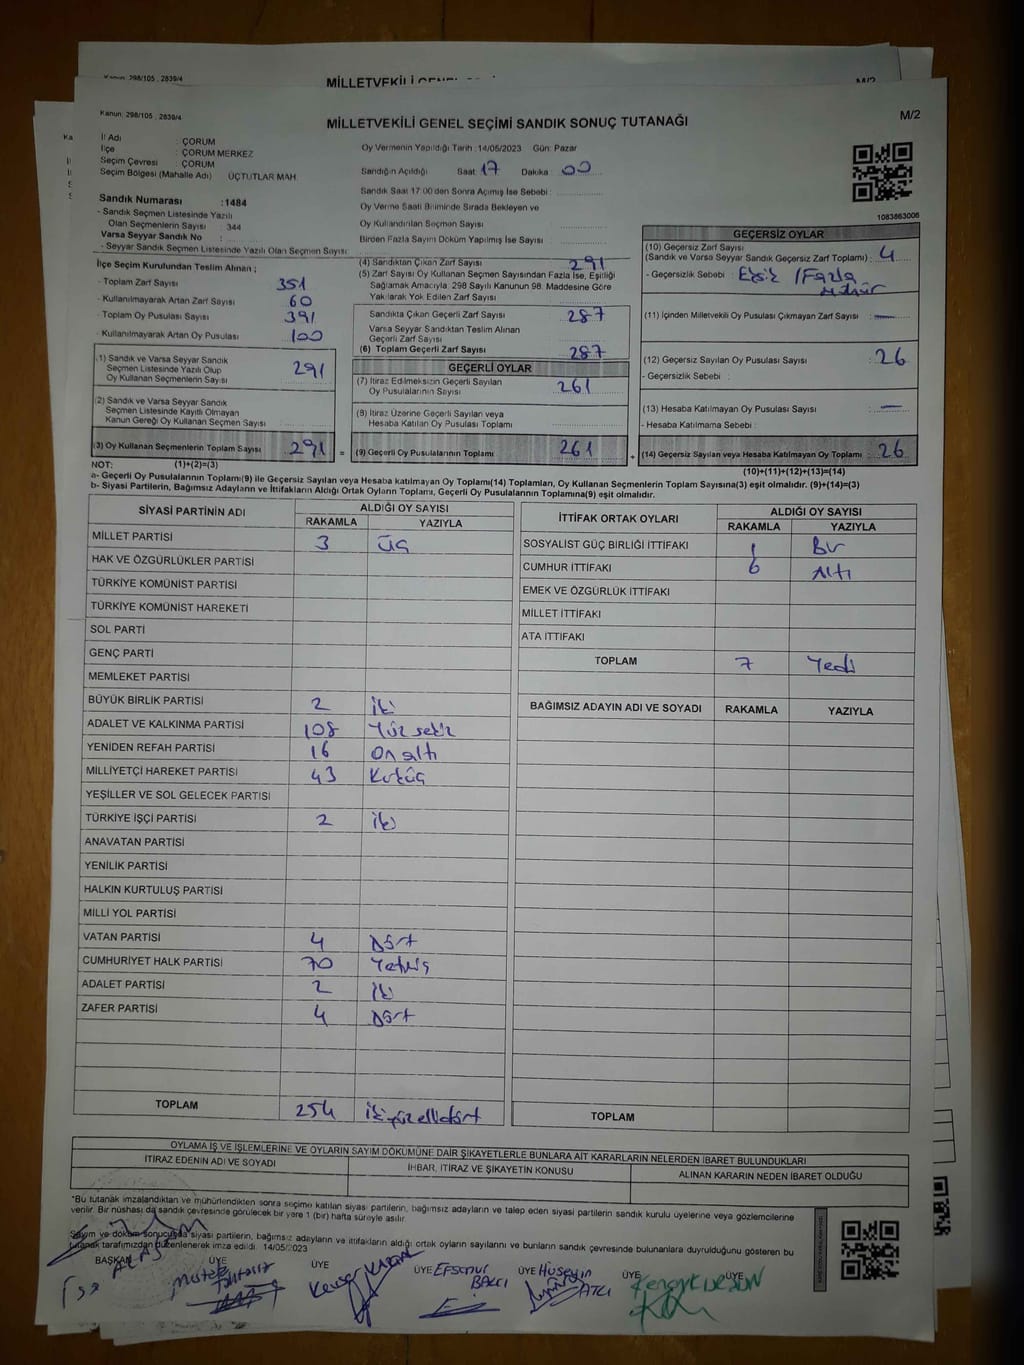 MİLLETVEKİLİ
Kanun: 298/105 , 2839/4
M/2
MİLLETVEKİLİ GENEL SEÇİMİ SANDIK SONUÇ TUTANAĞI
İl Adı : ÇORUM
İlçe : ÇORUM MERKEZ
Seçim Çevresi : ÇORUM
Seçim Bölgesi (Mahalle Adı) ÜÇTUTLAR MAH
Oy Vermenin Yapıldığı Tarih :14/05/2023 Gün: Pazar
Sandığın Açıldığı Saat 17 Dakika 00
Sandık Saat 17:00'den Sonra Açılmış İse Sebebi :
Oy Verme Saati Bitiminde Sırada Bekleyen ve
Oy Kullandırılan Seçmen Sayısı
Birden Fazla Sayım Döküm Yapılmış İse Sayısı
1083863006
Sandık Numarası :1484
- Sandık Seçmen Listesinde Yazılı
Olan Seçmenlerin Sayısı : 344
Varsa Seyyar Sandık No :
- Seyyar Sandık Seçmen Listesinde Yazılı Olan Seçmen Sayısı:
İlçe Seçim Kurulundan Teslim Alınan ;
- Toplam Zarf Sayısı 351
- Kullanılmayarak Artan Zarf Sayısı 60
- Toplam Oy Pusulası Sayısı 391
- Kullanılmayarak Artan Oy Pusulası 100
(1) Sandık ve Varsa Seyyar Sandık
Seçmen Listesinde Yazılı Olup
Oy Kullanan Seçmenlerin Sayısı 291
(2) Sandık ve Varsa Seyyar Sandık
Seçmen Listesinde Kayıtlı Olmayan
Kanun Gereği Oy Kullanan Seçmen Sayısı :
(3) Oy Kullanan Seçmenlerin Toplam Sayısı 291 =
(4) Sandıktan Çıkan Zarf Sayısı 291
(5) Zarf Sayısı Oy Kullanan Seçmen Sayısından Fazla İse, Eşitliği
Sağlamak Amacıyla 298 Sayılı Kanunun 98. Maddesine Göre
Yakılarak Yok Edilen Zarf Sayısı
Sandıkta Çıkan Geçerli Zarf Sayısı 287
Varsa Seyyar Sandıktan Teslim Alınan
Geçerli Zarf Sayısı
(6) Toplam Geçerli Zarf Sayısı 287
GEÇERLİ OYLAR
(7) İtiraz Edilmeksizin Geçerli Sayılan
Oy Pusulalarının Sayısı 261
(8) İtiraz Üzerine Geçerli Sayılan veya
Hesaba Katılan Oy Pusulası Toplamı
(9) Geçerli Oy Pusulalarının Toplamı 261 +
GEÇERSİZ OYLAR
(10) Geçersiz Zarf Sayısı
(Sandık ve Varsa Seyyar Sandık Geçersiz Zarf Toplamı) : 4
- Geçersizlik Sebebi : /Fazla
mühür
(11) İçinden Milletvekili Oy Pusulası Çıkmayan Zarf Sayısı : —
(12) Geçersiz Sayılan Oy Pusulası Sayısı : 26
- Geçersizlik Sebebi :
(13) Hesaba Katılmayan Oy Pusulası Sayısı : —
- Hesaba Katılmama Sebebi :
(14) Geçersiz Sayılan veya Hesaba Katılmayan Oy Toplamı : 26
NOT: (1)+(2)=(3) (10)+(11)+(12)+(13)=(14)
a- Geçerli Oy Pusulalarının Toplamı(9) ile Geçersiz Sayılan veya Hesaba Katılmayan Oy Toplamı(14) Toplamları, Oy Kullanan Seçmenlerin Toplam Sayısına(3) eşit olmalıdır. (9)+(14)=(3)
b- Siyasi Partilerin, Bağımsız Adayların ve İttifakların Aldığı Ortak Oyların Toplamı, Geçerli Oy Pusulalarının Toplamına(9) eşit olmalıdır.
SİYASİ PARTİNİN ADI ALDIĞI OY SAYISI
RAKAMLA YAZIYLA
MİLLET PARTİSİ 3 Üç
HAK VE ÖZGÜRLÜKLER PARTİSİ
TÜRKİYE KOMÜNİST PARTİSİ
TÜRKİYE KOMÜNİST HAREKETİ
SOL PARTİ
GENÇ PARTİ
MEMLEKET PARTİSİ
BÜYÜK BİRLİK PARTİSİ 2 İki
ADALET VE KALKINMA PARTİSİ 108 Yüz sekiz
YENİDEN REFAH PARTİSİ 16 On altı
MİLLİYETÇİ HAREKET PARTİSİ 43 Kırküç
YEŞİLLER VE SOL GELECEK PARTİSİ
TÜRKİYE İŞÇİ PARTİSİ 2 İki
ANAVATAN PARTİSİ
YENİLİK PARTİSİ
HALKIN KURTULUŞ PARTİSİ
MİLLİ YOL PARTİSİ
VATAN PARTİSİ 4 Dört
CUMHURİYET HALK PARTİSİ 70 Yetmiş
ADALET PARTİSİ 2 İki
ZAFER PARTİSİ 4 Dört
TOPLAM 254 İkiyüz ellidört
İTTİFAK ORTAK OYLARI ALDIĞI OY SAYISI
RAKAMLA YAZIYLA
SOSYALİST GÜÇ BİRLİĞİ İTTİFAKI 1 Bir
CUMHUR İTTİFAKI 6 Altı
EMEK VE ÖZGÜRLÜK İTTİFAKI
MİLLET İTTİFAKI
ATA İTTİFAKI
TOPLAM 7 Yedi
BAĞIMSIZ ADAYIN ADI VE SOYADI RAKAMLA YAZIYLA
TOPLAM
OYLAMA İŞ VE İŞLEMLERİNE VE OYLARIN SAYIM DÖKÜMÜNE DAİR ŞİKAYETLERLE BUNLARA AİT KARARLARIN NELERDEN İBARET BULUNDUKLARI
İTİRAZ EDENİN ADI VE SOYADI İHBAR, İTİRAZ VE ŞİKAYETİN KONUSU ALINAN KARARIN NEDEN İBARET OLDUĞU
"Bu tutanak imzalandıktan ve mühürlendikten sonra seçime katılan siyasi partilerin, bağımsız adayların ve talep eden siyasi partilerin sandık kurulu üyelerine veya gözlemcilerine
verilir. Bir nüshası da sandık çevresinde görülecek bir yere 1 (bir) hafta süreyle asılır.
Sayım ve döküm sonucunda siyasi partilerin, bağımsız adayların ve ittifakların aldığı ortak oyların sayılarını ve bunların sandık çevresinde bulunanlara duyrulduğunu gösteren bu
tutanak tarafımızdan düzenlenerek imza edildi. 14/05/2023
BAŞKAN ÜYE ÜYE ÜYE ÜYE ÜYE ÜYE
Mustafa
Kevser KARAL
Efsanur
BALCI
Hüseyin
ATCI